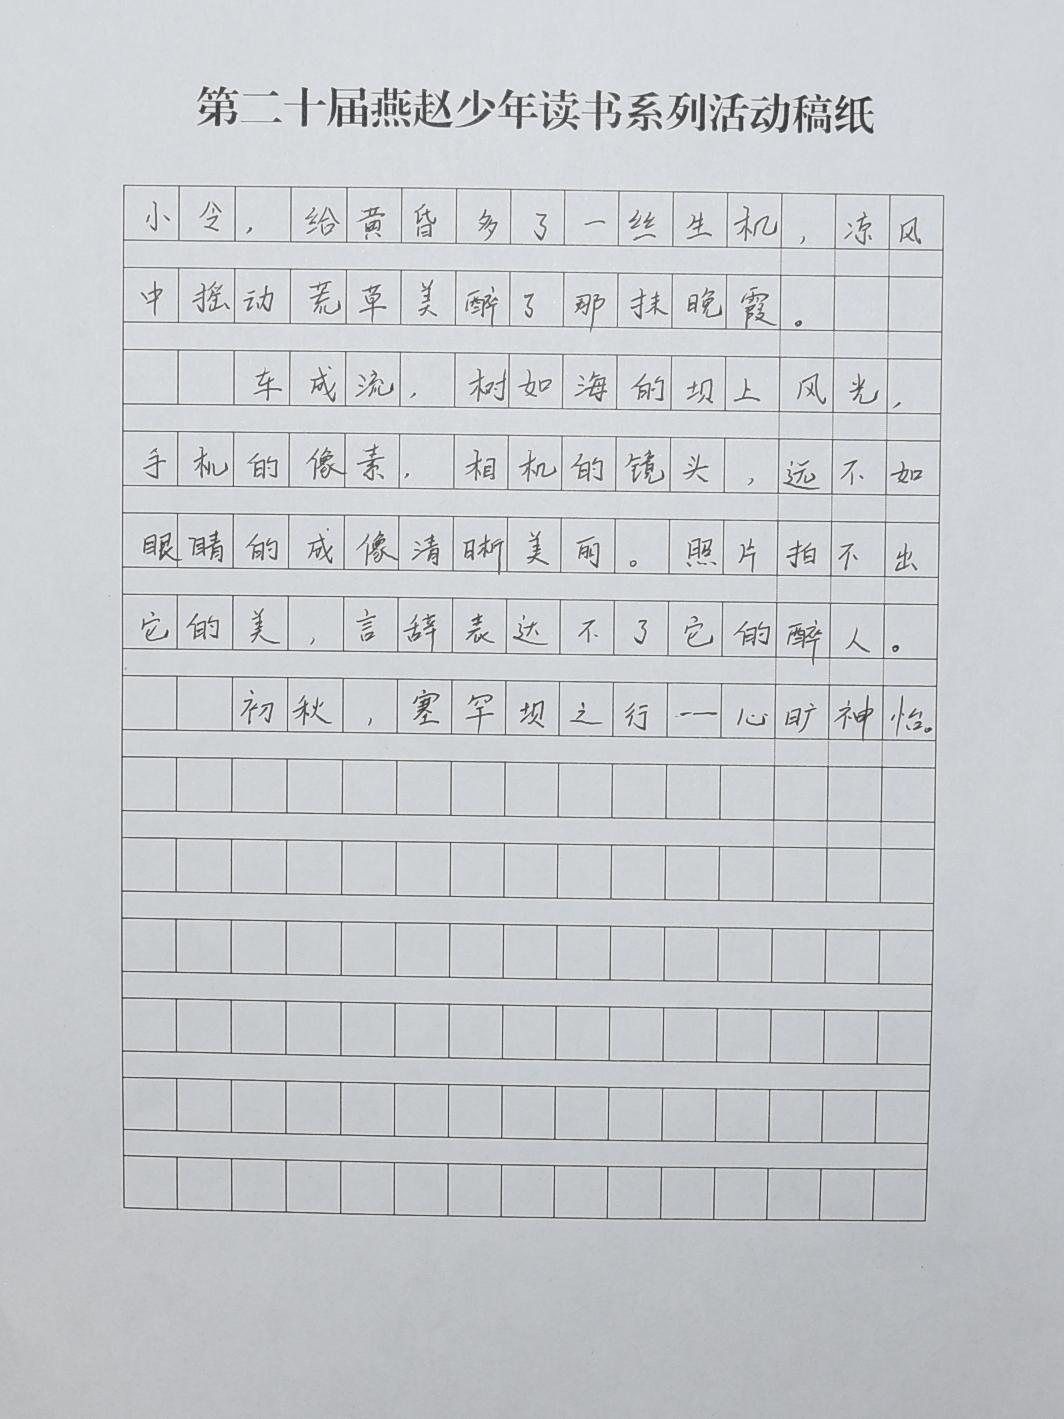 第二十届燕赵少年读书系列活动稿纸
小令，给黄昏多了一丝生机，凉风
中摇动荒草美醉了那抹晚霞。
车成流，树如海的坝上风光，
手机的像素，相机的镜头，远不如
眼睛的成像清晰美丽。照片拍不出
它的美，言辞表达不了它的醉人。
初秋，塞罕坝之行一一心旷神怡。